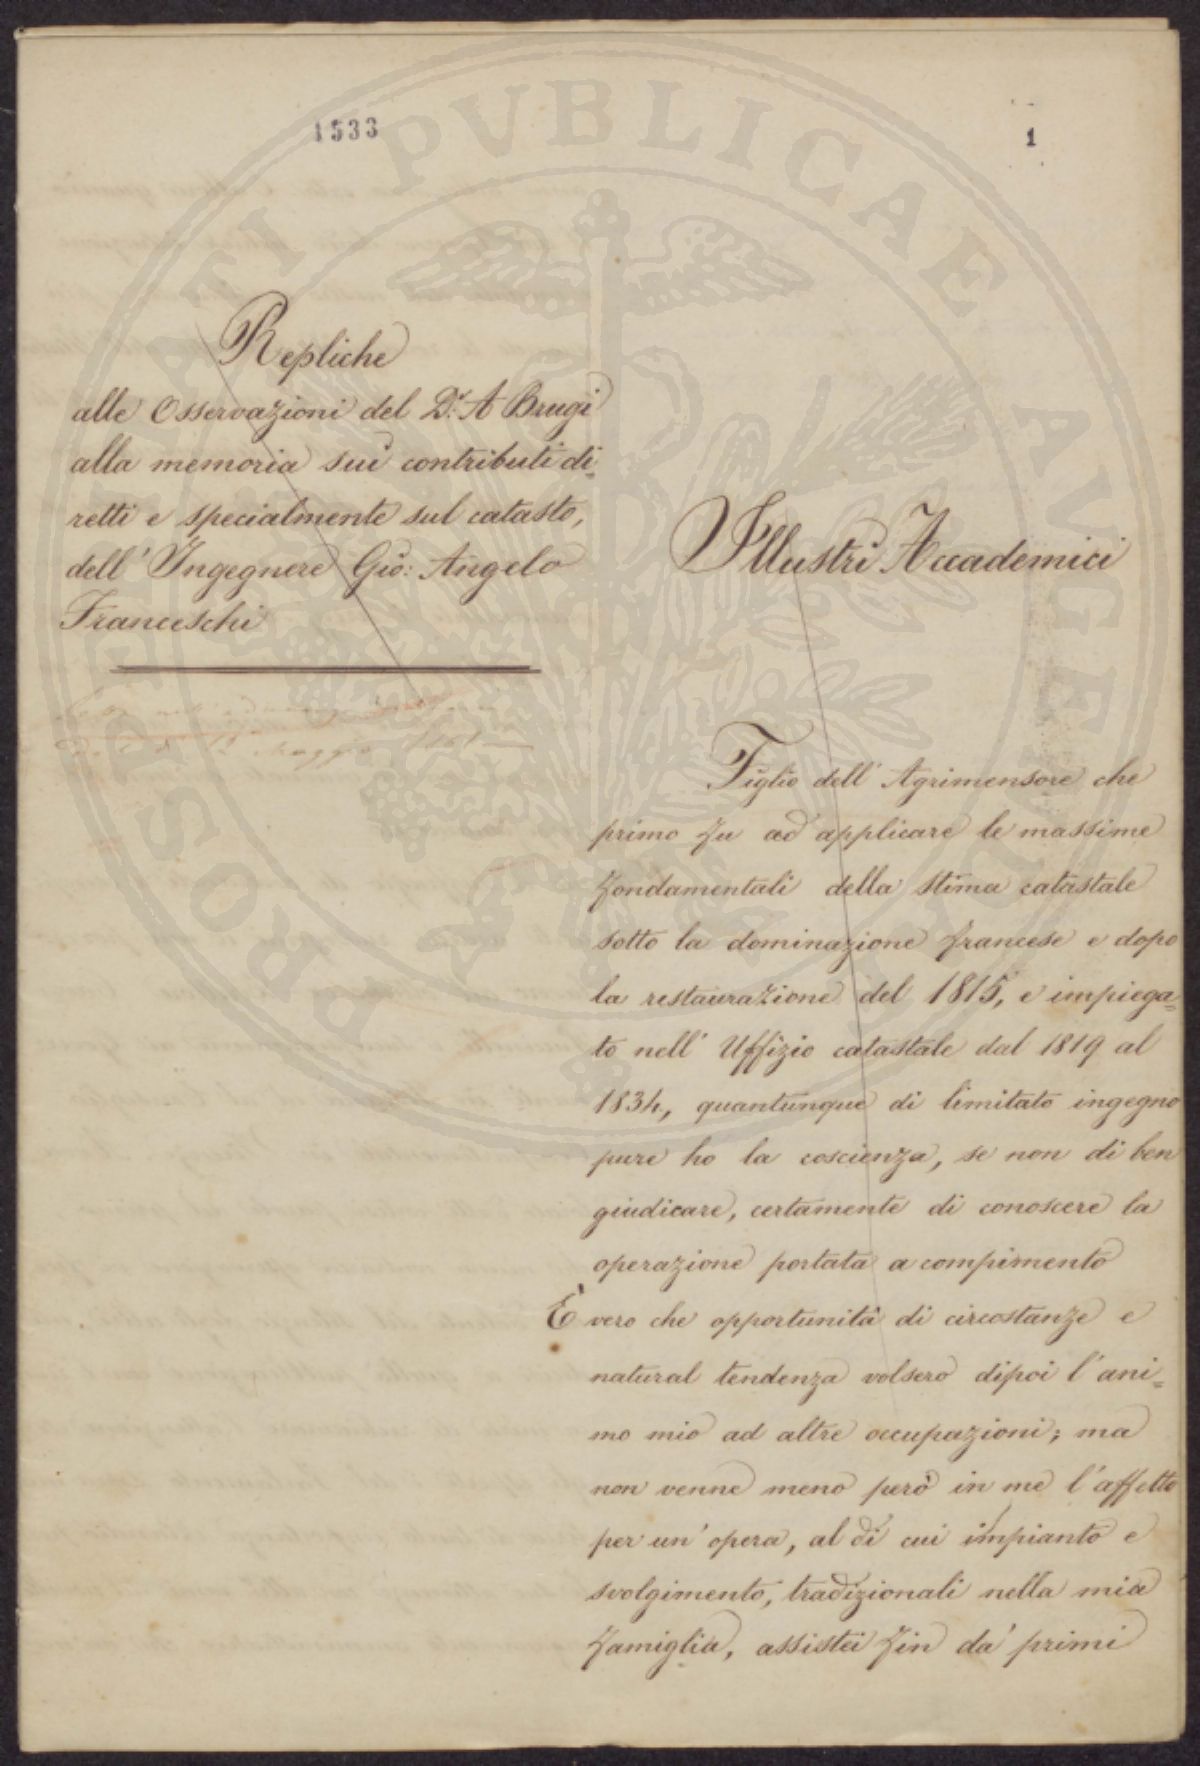 1533
1
Repliche
alle Osservazioni del D.r A Brugi
alla memoria sui contributi di=
retti e specialmente sul catasto,
dell' Ingegnere Gio: Angelo
Franceschi
Maggio
Illustri Accademici
Figlio dell' Agrimensore che
primo fu ad applicare le massime
fondamentali della stima catastale
sotto la dominazione francese e dopo
la restaurazione del 1815, e impiega=
to nell' Uffizio catastale dal 1819 al
1834, quantunque di limitato ingegno
pure ho la coscienza, se non di ben
giudicare, certamente di conoscere la
operazione portata a compimento
È vero che opportunità di circostanze e
natural tendenza volsero dipoi l' ani=
mo mio ad altre occupazioni; ma
non venne meno però in me l' affetto
per un' opera, al di cui impianto e
svolgimento, tradizionali nella mia
famiglia, assistei fin da' primi
PROSPERITATI PVBLICAE AVGENDAE